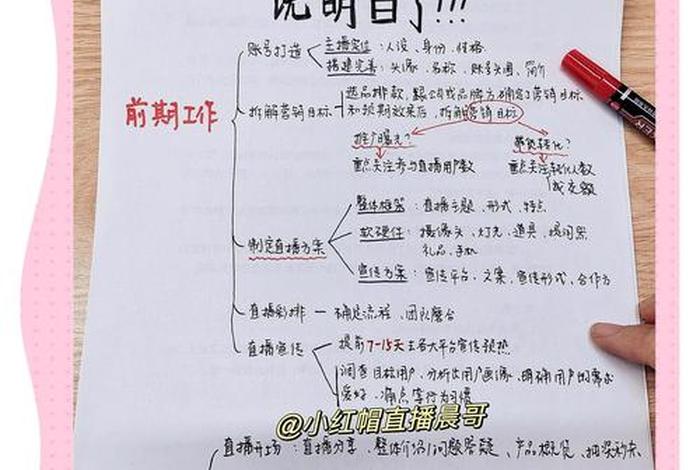 说明白了!!!
账号打造
主播定位:人设、身份、性格
搭建完善:头像、名称、账号头图、简介
前期工作
拆解营销目标
选品排款,跟公司或品牌方确定了营销目标
和预期效果后,拆解营销目标
推广曝光?
重点关注参与直播用户数
带货转化?
重点关注转化人数
或成交额
制定直播方案
整体框架:直播主题、形式、特点
软硬件:摄像头、灯光、道具、
礼品、手机
宣传方案:宣传平台、文案、宣传形式、合作方
直播彩排 — 确定流程、团队磨合
直播宣传
提前7-15天去各大平台宣传预热
调查目标用户,分析出用户画像、明确用户的需求
爱好、痛点等行为习惯
@小红帽直播晨哥
直播开场:直播分享、整体介绍/问题答疑、产品概览、抽奖秒杀